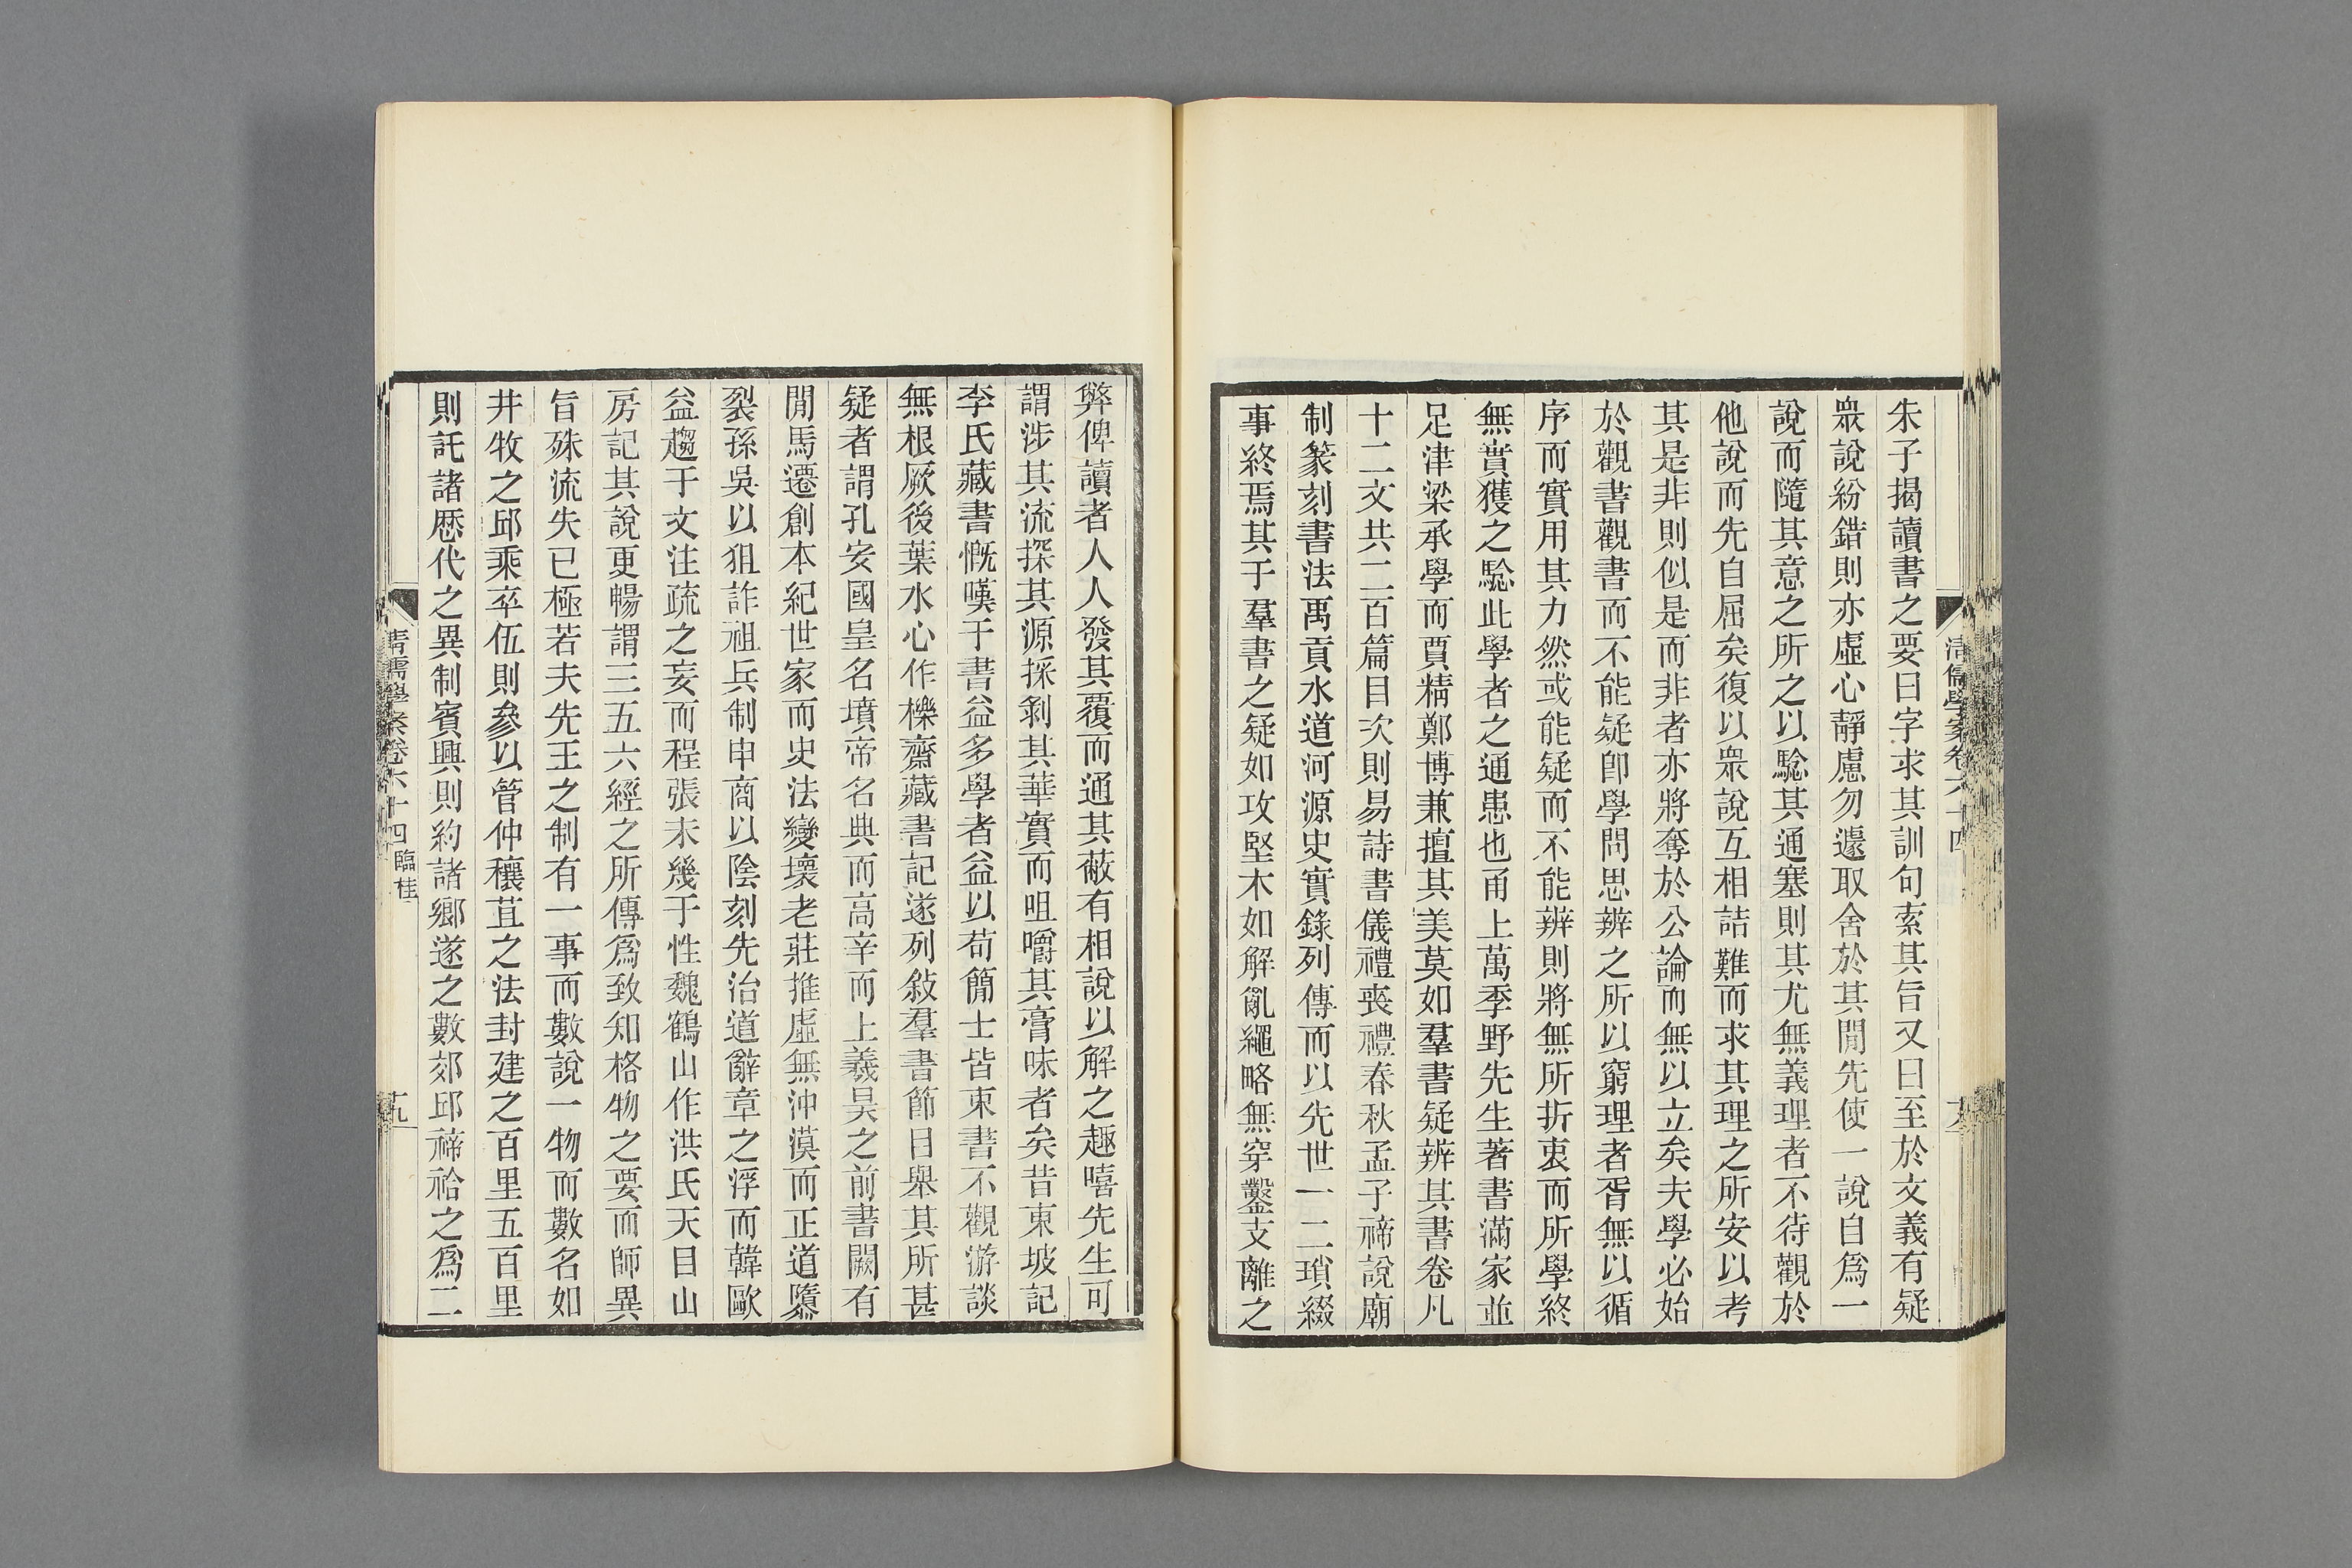 朱子揭讀書之要曰字求其訓句索其旨又曰至於文義有疑
衆說紛錯則亦虛心靜慮勿遽取舍於其閒先使一說自爲一
說而隨其意之所之以驗其通塞則其尤無義理者不待觀於
他說而先自屈矣復以衆說互相詰難而求其理之所安以考
其是非則似是而非者亦將奪於公論而無以立矣夫學必始
於觀書觀書而不能疑卽學問思辨之所以窮理者胥無以循
序而實用其力然或能疑而不能辨則將無所折衷而所學終
無實獲之騐此學者之通患也甬上萬季野先生著書滿家並
足津梁承學而賈精鄭博兼擅其美莫如羣書疑辨其書卷凡
十二文共二百篇目次則易詩書儀禮喪禮春秋孟子禘說廟
制篆刻書法禹貢水道河源史實錄列傳而以先世一二瑣綴
事終焉其于羣書之疑如攻堅木如解亂繩略無穿鑿支離之
清儒學案卷六十四
弊俾讀者人人發其覆而通其蔽有相說以解之趣嘻先生可
謂涉其流探其源採剝其華實而咀嚼其膏味者矣昔東坡記
李氏藏書慨嘆于書益多學者益以苟簡士皆束書不觀游談
無根厥後葉水心作櫟齋藏書記遂列敍羣書節目舉其所甚
疑者謂孔安國皇名墳帝名典而高辛而上羲昊之前書闕有
閒馬遷創本紀世家而史法變壞老莊推虛無沖漠而正道隳
裂孫吳以狙詐祖兵制申商以陰刻先治道辭章之浮而韓歐
益趨于文注疏之妄而程張未幾于性魏鶴山作洪氏天目山
房記其說更暢謂三五六經之所傳爲致知格物之要而師異
旨殊流失已極若夫先王之制有一事而數說一物而數名如
井牧之邱乘卒伍則參以管仲穰苴之法封建之百里五百里
則託諸歷代之異制賓興則約諸鄉遂之數郊邱禘祫之爲二
清儒學案卷六十四 臨桂 十九